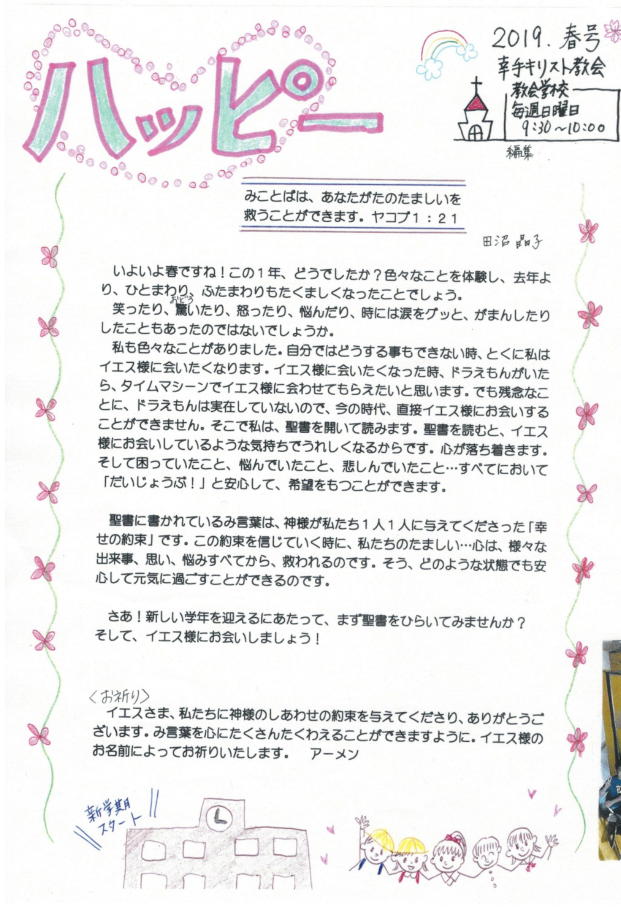 ハッピー
2019.春号
幸手キリスト教会
教会学校
毎週日曜日
9:30～10:00
編集
みことばは、あなたがたのたましいを
救うことができます。ヤコブ1：21
田沼 晶子
いよいよ春ですね！この1年、どうでしたか？色々なことを体験し、去年よ
り、ひとまわり、ふたまわりもたくましくなったことでしょう。
おどろ
笑ったり、驚いたり、怒ったり、悩んだり、時には涙をグッと、がまんしたり
したこともあったのではないでしょうか。
私も色々なことがありました。自分ではどうする事もできない時、とくに私は
イエス様に会いたくなります。イエス様に会いたくなった時、ドラえもんがいた
ら、タイムマシーンでイエス様に会わせてもらえたいと思います。でも残念なこ
とに、ドラえもんは実在していないので、今の時代、直接イエス様にお会いする
ことができません。そこで私は、聖書を開いて読みます。聖書を読むと、イエス
様にお会いしているような気持ちでうれしくなるからです。心が落ち着きます。
そして困っていたこと、悩んでいたこと、悲しんでいたこと…すべてにおいて
「だいじょうぶ！」と安心して、希望をもつことができます。
聖書に書かれているみ言葉は、神様が私たち1人1人に与えてくださった「幸
せの約束」です。この約束を信じていく時に、私たちのたましい…心は、様々な
出来事、思い、悩みすべてから、救われるのです。そう、どのような状態でも安
心して元気に過ごすことができるのです。
さあ！新しい学年を迎えるにあたって、まず聖書をひらいてみませんか？
そして、イエス様にお会いしましょう！
〈お祈り〉
イエスさま、私たちに神様のしあわせの約束を与えてくださり、ありがとうご
ざいます。み言葉を心にたくさんたくわえることができますように。イエス様の
お名前によってお祈りいたします。 アーメン
新学期
スタート